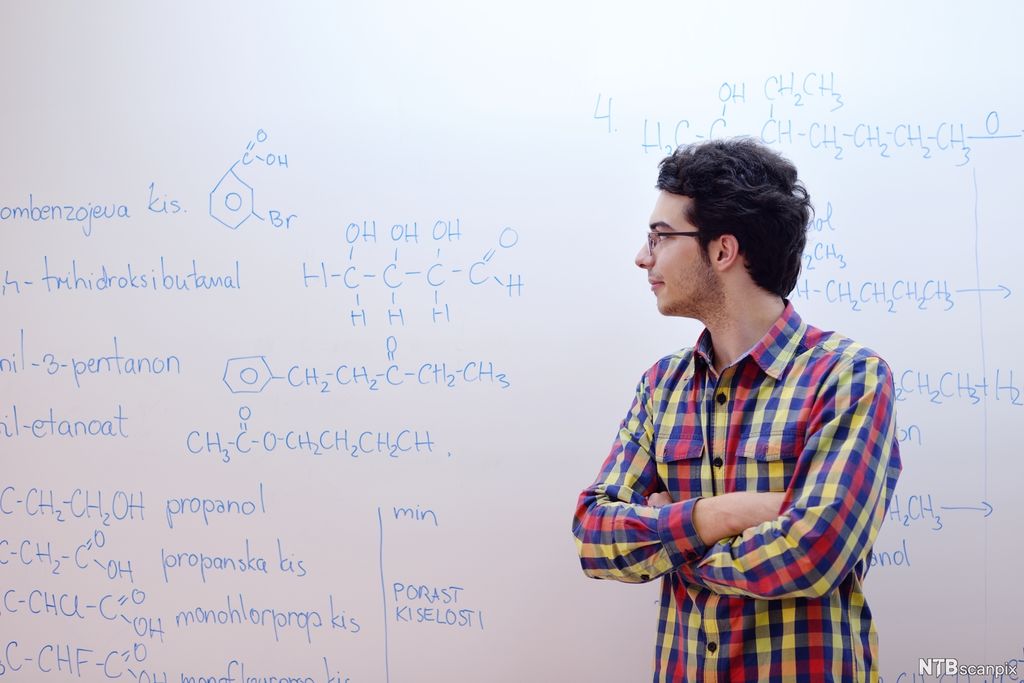 ombenzojeva kis.
C
O
OH
Br
,4- trihidroksibutanal
OH OH OH O
H-C-C-C-C
H
H H H
nil-3-pentanon
O
-CH₂-CH₂-C-CH₂-CH₃
il-etanoat
O
CH₃-C-O-CH₂CH₂CH₂CH₂.
C-CH₂-CH₂OH propanol
C-CH₂-C
O
OH
propanska kis
C-CHCl-C
O
OH
monohlorprop kis
₃C-CHF-C
O
OH
min
PORAST
KISELOSTI
4.
OH CH₂CH₃
H₃C-C CH-CH₂-CH₂-CH₂-CH₃ O
ol
₂CH₃
H-CH₂CH₂CH₂CH₃
₂CH₂CH₃+H₂
on
H₂CH₃
anol
NTBscanpix